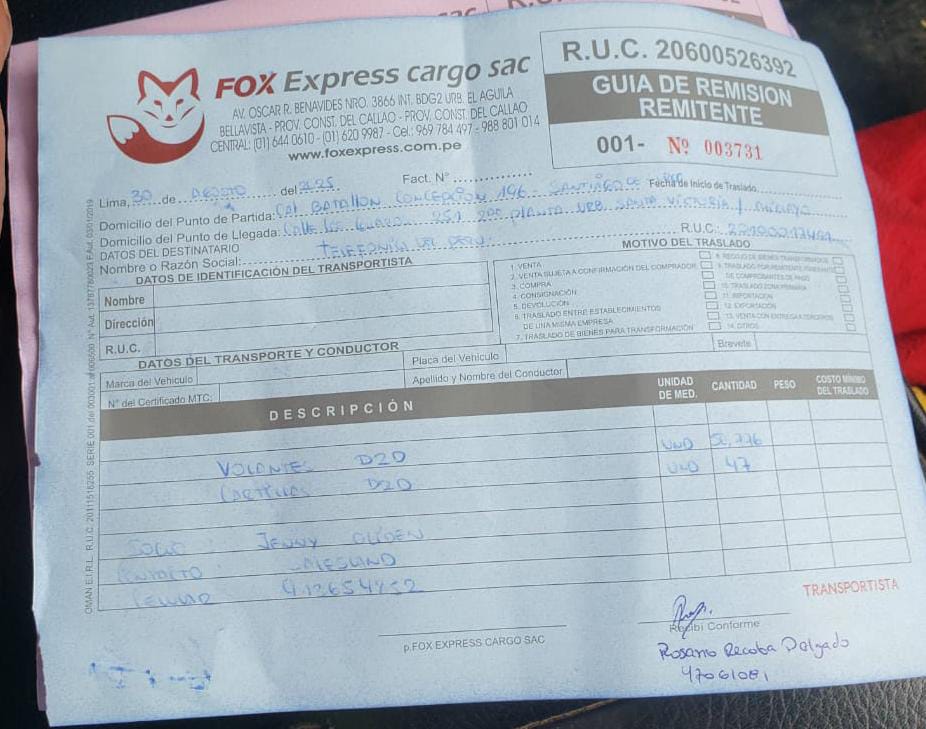 FOX Express cargo sac
AV. OSCAR R. BENAVIDES NRO. 3866 INT. BDG2 URB. EL AGUILA
BELLAVISTA - PROV. CONST. DEL CALLAO - PROV. CONST. DEL CALLAO
CENTRAL: (01) 644 0610 - (01) 620 9987 - Cel.: 969 784 497 - 988 801 014
www.foxexpress.com.pe
R.U.C. 20600526392
GUIA DE REMISION
REMITENTE
001- Nº 003731
Lima, 30 de AGOSTO del 2025 Fact. N°
Fecha de Inicio de Traslado
Domicilio del Punto de Partida: CAL BATALLON CONCEPCION 196 - SANTIAGO DE
Domicilio del Punto de Llegada: CALLE 251 2DA PLANTA URB. SANTA VICTORIA /
DATOS DEL DESTINATARIO
Nombre o Razón Social: TELEFONICA DEL PERU. R.U.C.:
DATOS DE IDENTIFICACIÓN DEL TRANSPORTISTA
Nombre
Dirección
R.U.C.
MOTIVO DEL TRASLADO
1. VENTA
2. VENTA SUJETA A CONFIRMACIÓN DEL COMPRADOR
3. COMPRA
4. CONSIGNACIÓN
5. DEVOLUCIÓN
6. TRASLADO ENTRE ESTABLECIMIENTOS
DE UNA MISMA EMPRESA
7. TRASLADO DE BIENES PARA TRANSFORMACIÓN
8. RECOJO DE BIENES TRANSFORMADOS
9. TRASLADO POR EMISOR ITINERANTE
DE COMPROBANTES DE PAGO
10. TRASLADO ZONA PRIMARIA
11. IMPORTACIÓN
12. EXPORTACIÓN
13. VENTA CON ENTREGA A TERCEROS
14. OTROS
DATOS DEL TRANSPORTE Y CONDUCTOR
Marca del Vehículo Placa del Vehículo Brevete
N° del Certificado MTC: Apellido y Nombre del Conductor
DESCRIPCIÓN UNIDAD DE MED. CANTIDAD PESO COSTO MÍNIMO DEL TRASLADO
VOLANTES D2D UND
D2D UND 47
SOCIO JENNY
CONTACTO SALESLAND
p.FOX EXPRESS CARGO SAC
Recibi Conforme
TRANSPORTISTA
Rosario Recoba Delgado
47061081